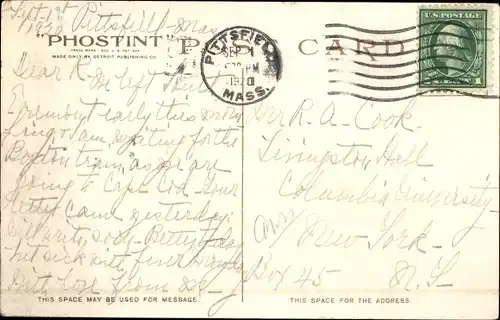 Sept 1st Pittsfield Mass
1920
"PHOSTINT" P CARD
TRADE MARK
MADE ONLY BY DETROIT PUBLISHING CO.
PITTSFIELD
SEP 1
PM
1920
MASS.
U.S. POSTAGE
1
Dear R - We left
early this morn
ing & am waiting for the
Boston train, as we are
going to Cape Cod - Your
letter came yesterday.
will write soon - Betty
but sick with fever
With love from
Mr R. A. Cook -
Livingston Hall
Columbia University
New York -
Box 45
N. Y -
THIS SPACE MAY BE USED FOR MESSAGE.
THIS SPACE IS FOR THE ADDRESS.